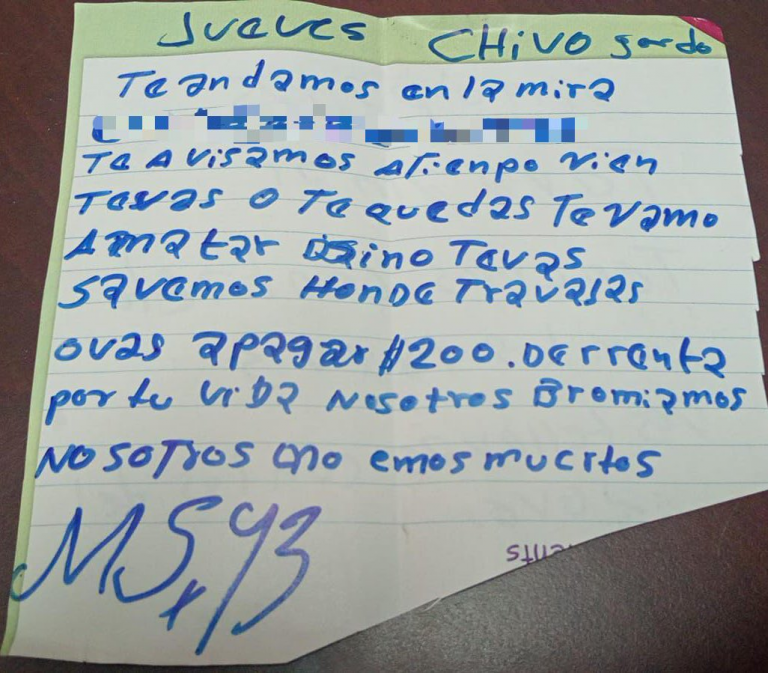 Jueves CHivo gordo
Te andamos en la mira
Te avisamos atienpo vien
Tevas o Te quedas Te vamo
Amatar sino Tevas
Savemos HonDe Travajas
ovas apagar $200. De rrenta
por tu viDa Nosotros Bromiamos
NosoTros no emos muertos
MS, 93
ents